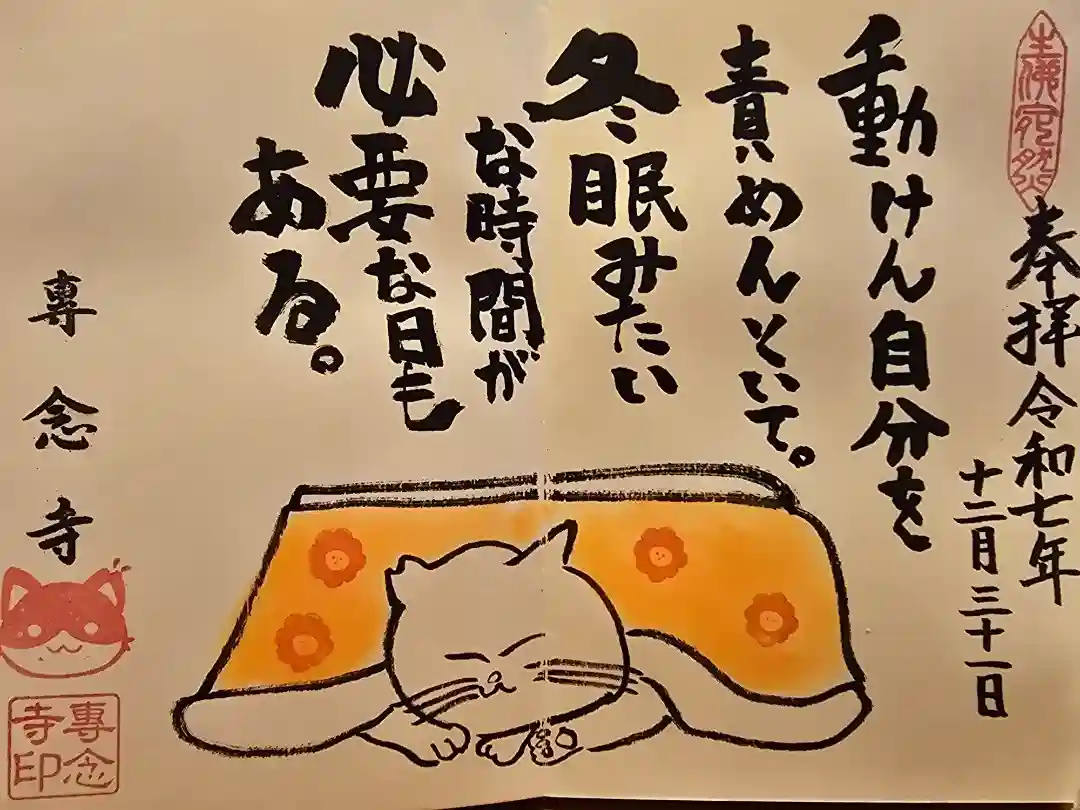 生佛宛然
奉拝 令和七年
十二月三十一日
動けん自分を
責めんといて。
冬眠みたい
な時間が
必要な日も
ある。
專念寺
專念
寺印